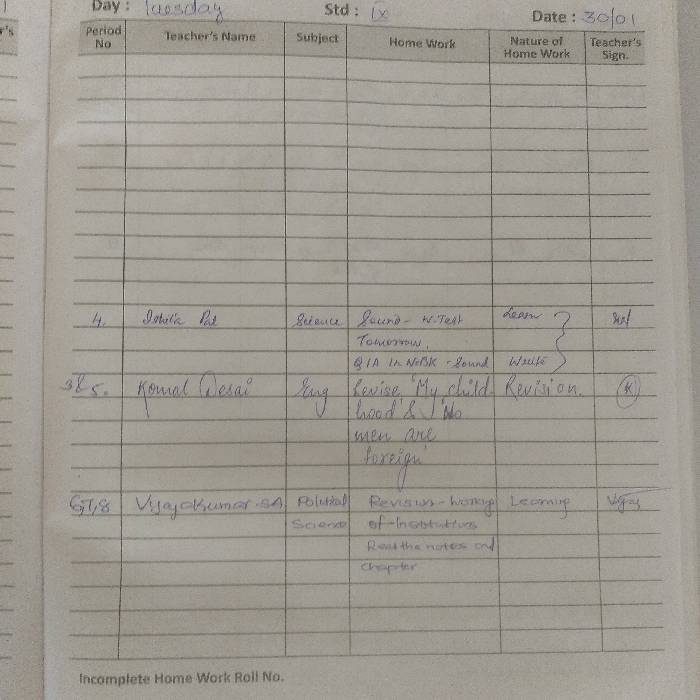 Day : Tuesday Std : IX Date : 30/01
Period No Teacher's Name Subject Home Work Nature of Home Work Teacher's Sign.
4. Pal Science Sound - W. Test Learn
Tomorrow.
Q/A in N.BK - Sound Write
3 & 5. Komal Desai Eng Revise 'My child- Revision. K
hood' & 'No
men are
foreign'
6,7,8 Vijayakumar. SA Political Revision - Working Learning
Science of - Institutions
Read the notes and
chapter
Incomplete Home Work Roll No.